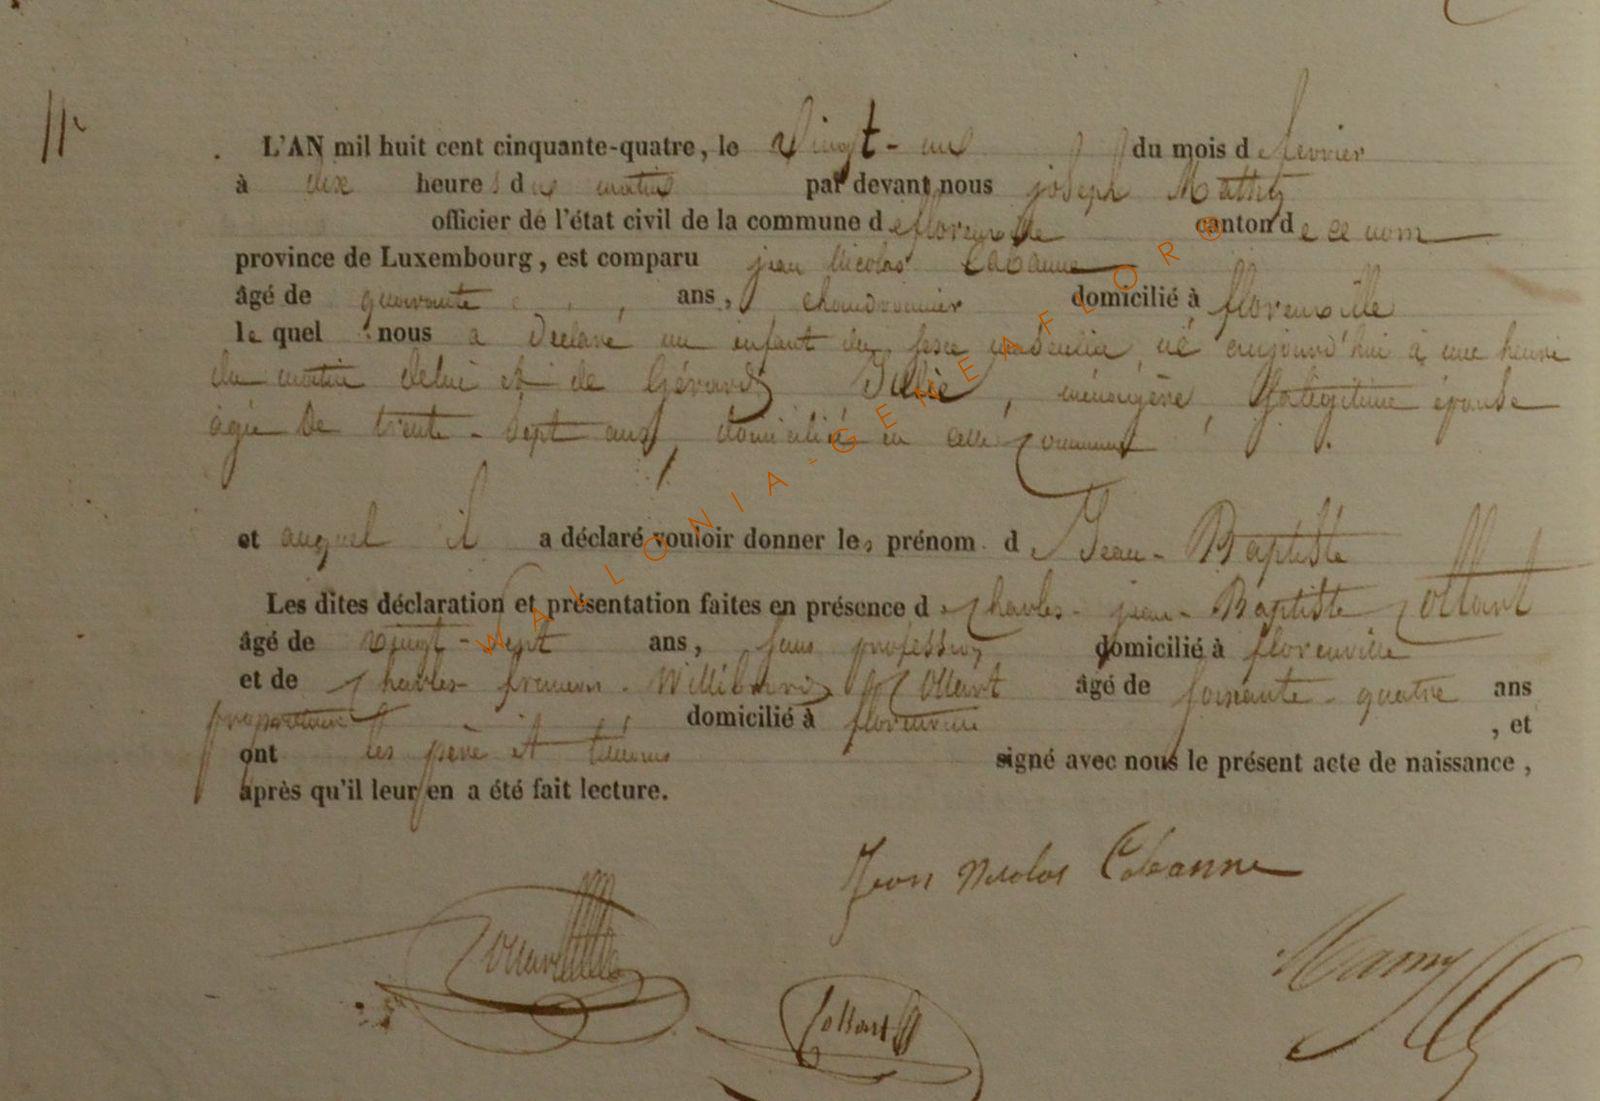 11
L'AN mil huit cent cinquante-quatre, le Vingt-un du mois de février
à dix heures du matin par devant nous joseph Mathy
officier de l'état civil de la commune de florenville canton de ce nom
province de Luxembourg, est comparu jean Nicolas Cabanne
âgé de quarante ans, chaudronnier domicilié à florenville
lequel nous a déclaré un enfant du sexe masculin, né aujourd'hui à une heure
du matin de lui et de Gérard Julie, ménagère, sa légitime épouse
agée de trente-sept ans, domicilié en cette commune.
et auquel il a déclaré vouloir donner les prénom de Jean-Baptiste
Les dites déclaration et présentation faites en présence de Charles-jean-Baptiste Collart
âgé de vingt-sept ans, sans profession domicilié à florenville
et de Charles-françois-Willibrord Collart âgé de soixante-quatre ans
propriétaire, domicilié à florenville, et
ont les père et témoins signé avec nous le présent acte de naissance,
après qu'il leur en a été fait lecture.
Jean Nicolas Cabanne
Collart
Collart
WALLONIA-GENEAFLOR®